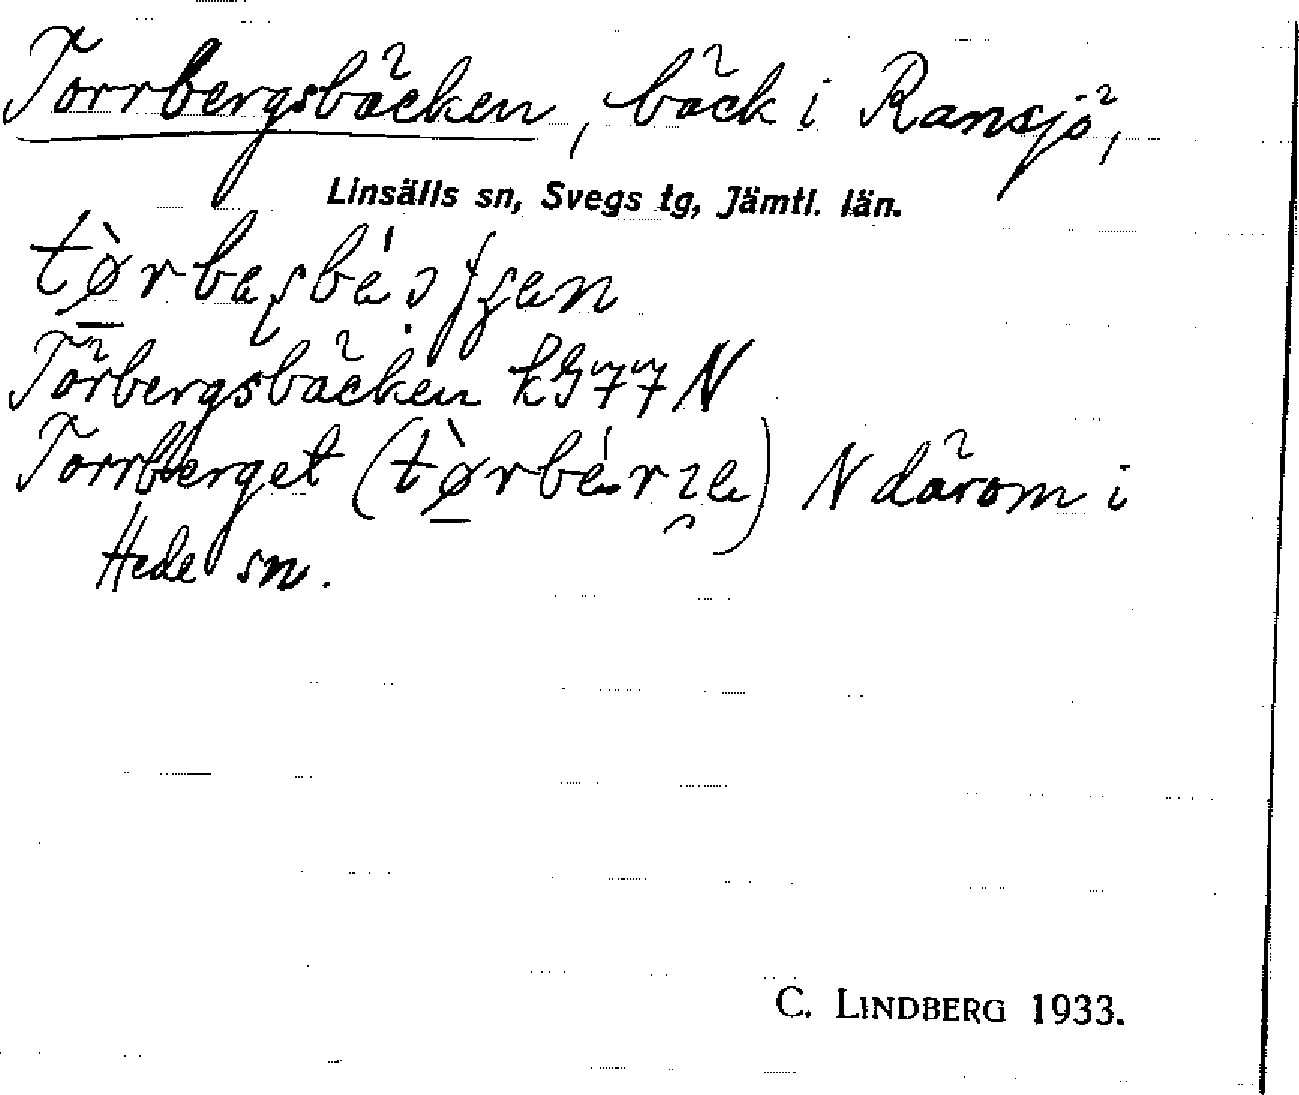 Torrbergsbäcken, bäck i Ransjö,
Linsälls sn, Svegs tg, Jämtl. län.
Törbergsbäcken kG77 N
Torrberget N därom i
Hede sn.
C. LINDBERG 1933.